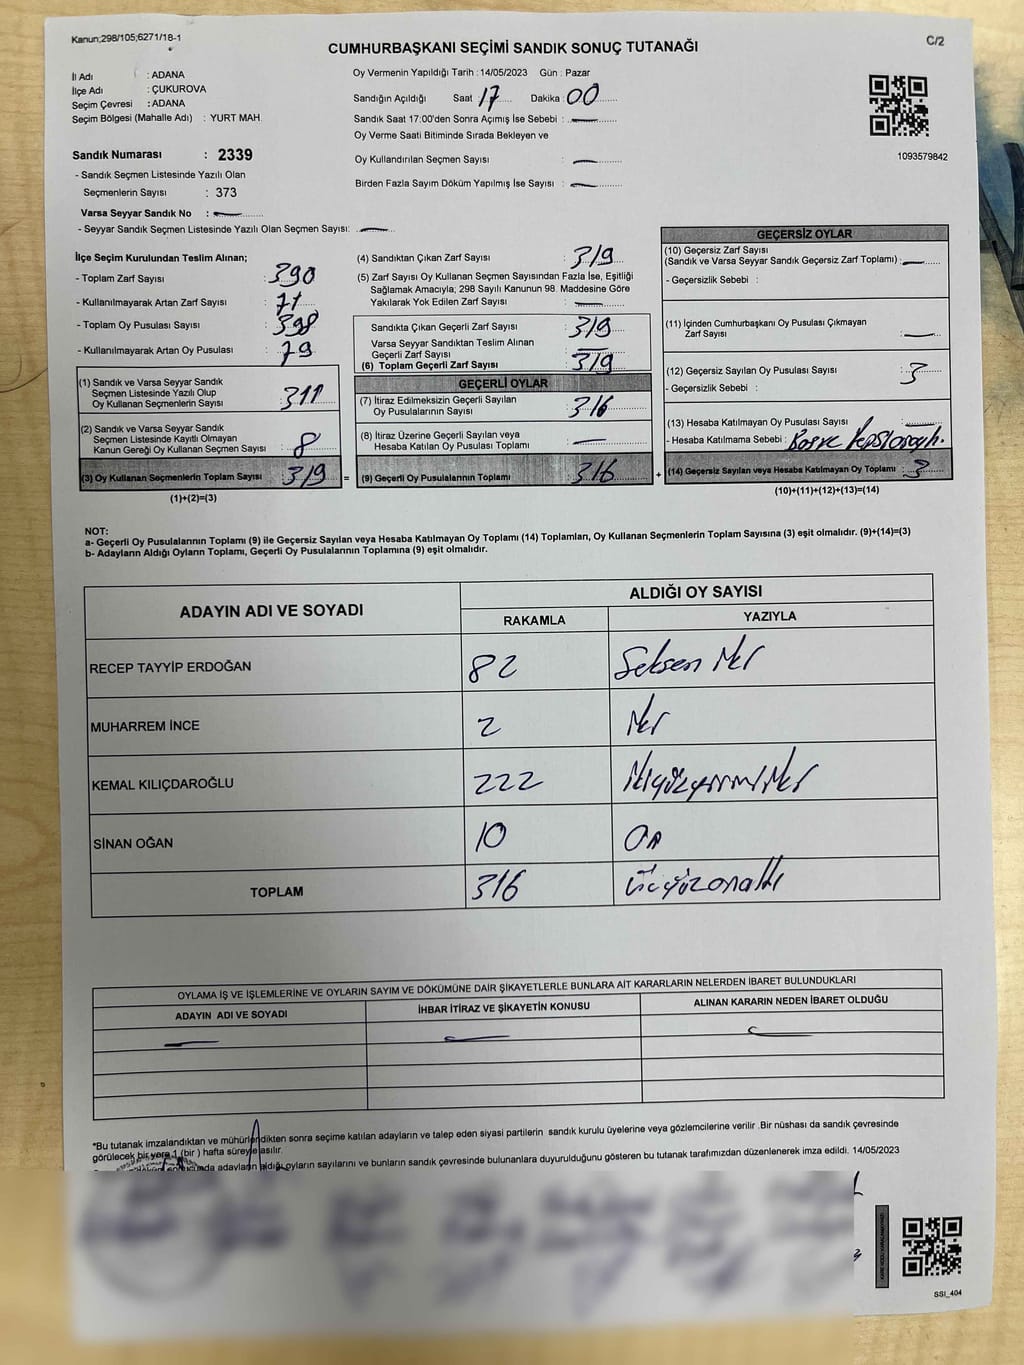 Kanun;298/105;6271/18-1
C/2
CUMHURBAŞKANI SEÇİMİ SANDIK SONUÇ TUTANAĞI
İl Adı : ADANA
İlçe Adı : ÇUKUROVA
Seçim Çevresi : ADANA
Seçim Bölgesi (Mahalle Adı) : YURT MAH.
Sandık Numarası : 2339
- Sandık Seçmen Listesinde Yazılı Olan
Seçmenlerin Sayısı : 373
Varsa Seyyar Sandık No :
- Seyyar Sandık Seçmen Listesinde Yazılı Olan Seçmen Sayısı:
Oy Vermenin Yapıldığı Tarih :14/05/2023 Gün : Pazar
Sandığın Açıldığı Saat 17 Dakika 00
Sandık Saat 17:00'den Sonra Açımış İse Sebebi :
Oy Verme Saati Bitiminde Sırada Bekleyen ve
Oy Kullandırılan Seçmen Sayısı :
Birden Fazla Sayım Döküm Yapılmış İse Sayısı :
1093579842
İlçe Seçim Kurulundan Teslim Alınan;
- Toplam Zarf Sayısı : 390
- Kullanılmayarak Artan Zarf Sayısı : 71
- Toplam Oy Pusulası Sayısı : 398
- Kullanılmayarak Artan Oy Pusulası : 79
(1) Sandık ve Varsa Seyyar Sandık
Seçmen Listesinde Yazılı Olup
Oy Kullanan Seçmenlerin Sayısı : 311
(2) Sandık ve Varsa Seyyar Sandık
Seçmen Listesinde Kayıtlı Olmayan
Kanun Gereği Oy Kullanan Seçmen Sayısı : 8
(3) Oy Kullanan Seçmenlerin Toplam Sayısı : 319 =
(1)+(2)=(3)
(4) Sandıktan Çıkan Zarf Sayısı : 319
(5) Zarf Sayısı Oy Kullanan Seçmen Sayısından Fazla İse, Eşitliği
Sağlamak Amacıyla; 298 Sayılı Kanunun 98. Maddesine Göre
Yakılarak Yok Edilen Zarf Sayısı :
Sandıkta Çıkan Geçerli Zarf Sayısı : 319
Varsa Seyyar Sandıktan Teslim Alınan
Geçerli Zarf Sayısı :
(6) Toplam Geçerli Zarf Sayısı : 319
GEÇERLİ OYLAR
(7) İtiraz Edilmeksizin Geçerli Sayılan
Oy Pusulalarının Sayısı : 316
(8) İtiraz Üzerine Geçerli Sayılan veya
Hesaba Katılan Oy Pusulası Toplamı :
(9) Geçerli Oy Pusulalarının Toplamı : 316 +
GEÇERSİZ OYLAR
(10) Geçersiz Zarf Sayısı
(Sandık ve Varsa Seyyar Sandık Geçersiz Zarf Toplamı) :
- Geçersizlik Sebebi :
(11) İçinden Cumhurbaşkanı Oy Pusulası Çıkmayan
Zarf Sayısı :
(12) Geçersiz Sayılan Oy Pusulası Sayısı : 3
- Geçersizlik Sebebi :
(13) Hesaba Katılmayan Oy Pusulası Sayısı :
- Hesaba Katılmama Sebebi :
(14) Geçersiz Sayılan veya Hesaba Katılmayan Oy Toplamı : 3
(10)+(11)+(12)+(13)=(14)
NOT:
a- Geçerli Oy Pusulalarının Toplamı (9) ile Geçersiz Sayılan veya Hesaba Katılmayan Oy Toplamı (14) Toplamları, Oy Kullanan Seçmenlerin Toplam Sayısına (3) eşit olmalıdır. (9)+(14)=(3)
b- Adayların Aldığı Oyların Toplamı, Geçerli Oy Pusulalarının Toplamına (9) eşit olmalıdır.
ADAYIN ADI VE SOYADI
ALDIĞI OY SAYISI
RAKAMLA YAZIYLA
RECEP TAYYİP ERDOĞAN 82 Seksen iki
MUHARREM İNCE 2 iki
KEMAL KILIÇDAROĞLU 222 ikiyüzyirmi iki
SİNAN OĞAN 10 On
TOPLAM 316 üçyüzonaltı
OYLAMA İŞ VE İŞLEMLERİNE VE OYLARIN SAYIM VE DÖKÜMÜNE DAİR ŞİKAYETLERLE BUNLARA AİT KARARLARIN NELERDEN İBARET BULUNDUKLARI
ADAYIN ADI VE SOYADI İHBAR İTİRAZ VE ŞİKAYETİN KONUSU ALINAN KARARIN NEDEN İBARET OLDUĞU
*Bu tutanak imzalandıktan ve mühürlendikten sonra seçime katılan adayların ve talep eden siyasi partilerin sandık kurulu üyelerine veya gözlemcilerine verilir .Bir nüshası da sandık çevresinde
görülecek bir yere 1 (bir ) hafta süreyle asılır.
adayların aldığı oyların sayılarını ve bunların sandık çevresinde bulunanlara duyurulduğunu gösteren bu tutanak tarafımızdan düzenlenerek imza edildi. 14/05/2023
SSI_404